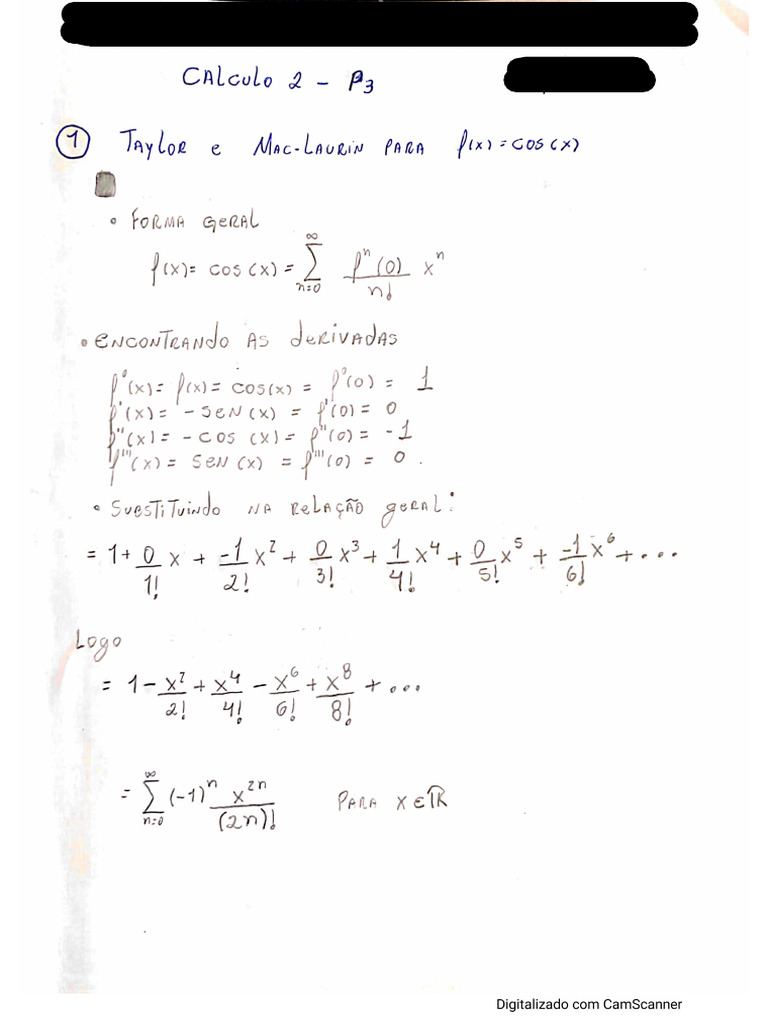 CALCULO 2 - P3
1 TAYLOR e MAC-LAURIN PARA f(x) = cos(x)
• FORMA GERAL
f(x) = cos(x) = ∑_{n=0}^{∞} f^n(0)/n! x^n
• ENCONTRANDO AS DERIVADAS
f°(x) = f(x) = cos(x) = f°(0) = 1
f'(x) = - SEN(x) = f'(0) = 0
f''(x) = - cos (x) = f''(0) = -1
f'''(x) = SEN(x) = f'''(0) = 0.
• SUBSTITUINDO NA RELAÇÃO GERAL:
= 1 + 0/1! x + -1/2! x² + 0/3! x³ + 1/4! x⁴ + 0/5! x⁵ + -1/6! x⁶ + ...
LOGO
= 1 - x²/2! + x⁴/4! - x⁶/6! + x⁸/8! + ...
= ∑_{n=0}^{∞} (-1)^n x^{2n}/(2n)! PARA x ∈ ℝ
Digitalizado com CamScanner